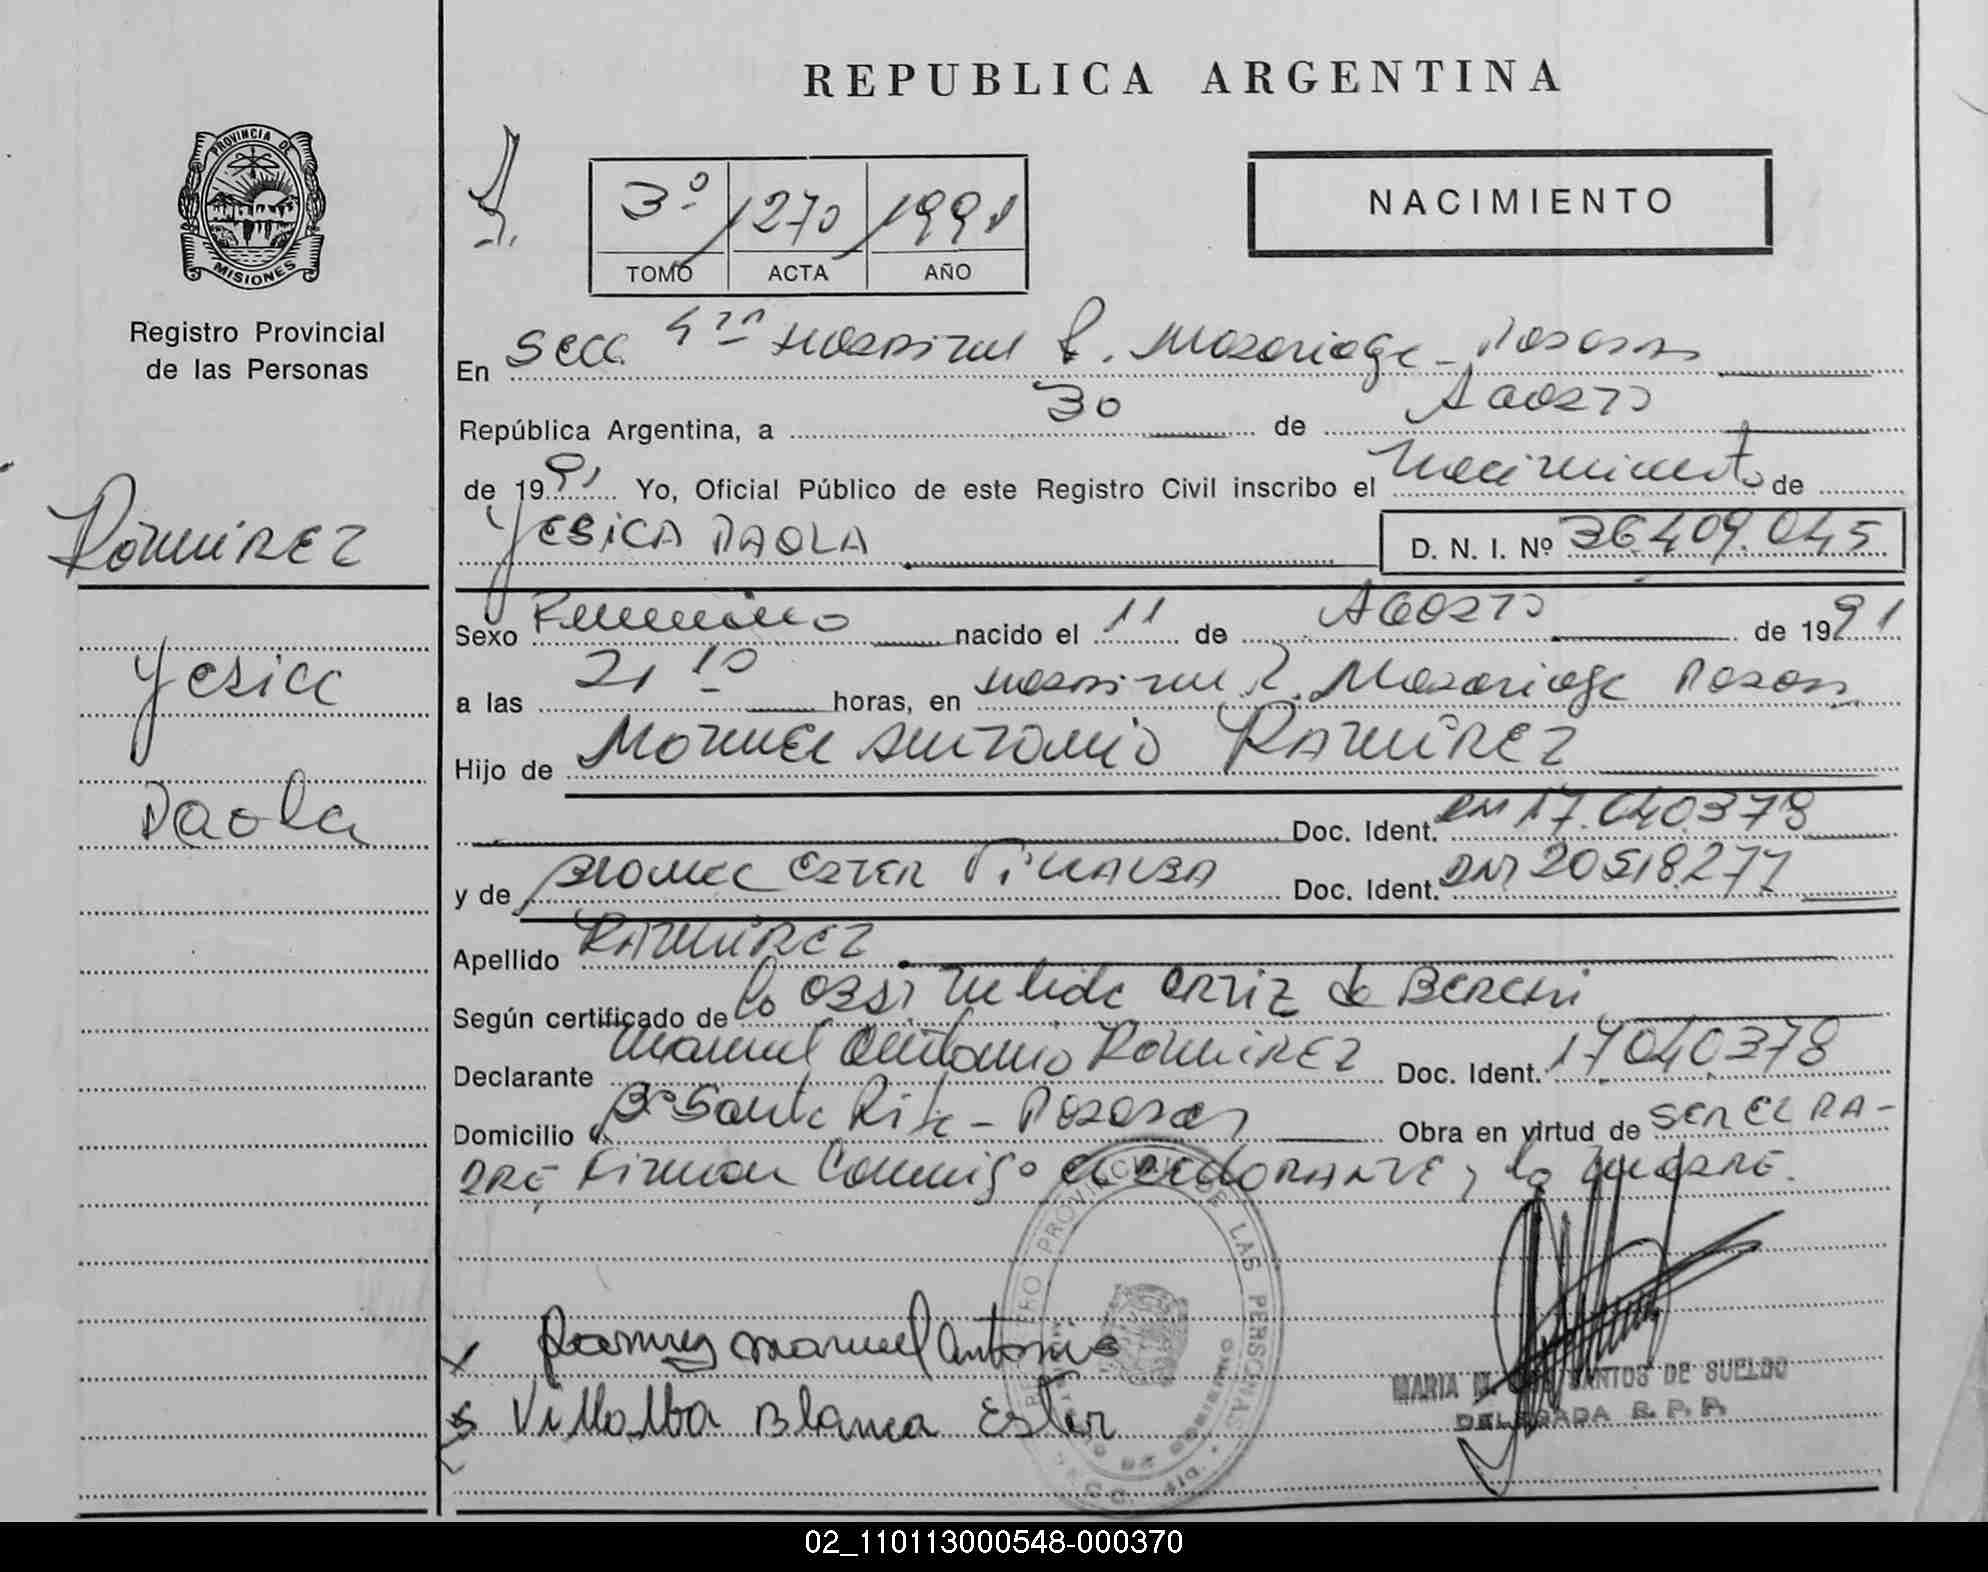 REPUBLICA ARGENTINA
PROVINCIA DE
MISIONES
Registro Provincial
de las Personas
3º / 1270 / 1991
TOMO ACTA AÑO
NACIMIENTO
En Secc. Hospital R. Madariaga - Posadas
República Argentina, a 30 de Agosto
de 1991 Yo, Oficial Público de este Registro Civil inscribo el Nacimiento de
YESICA PAOLA D. N. I. Nº 36.409.045
Ramirez
Yesica
Paola
Sexo Femenino nacido el 11 de Agosto de 1991
a las 21 10 horas, en Hospital R. Madariaga Posadas
Hijo de Manuel Antonio RAMIREZ
Doc. Ident. DNI 17.040.378
y de Blanca Ester VILLALBA Doc. Ident. DNI 20518277
Apellido RAMIREZ
Según certificado de la Obst. Ortiz de
Declarante Manuel Antonio Ramirez Doc. Ident. 17040378
Domicilio Bº Santa Rita - Posadas Obra en virtud de ser el pa-
dre Firman Conmigo el declarante y la madre.
REGISTRO PROVINCIAL DE LAS PERSONAS
Ramirez manuel Antonio
Villalba Blanca Ester
MARIA M. SANTOS DE SUELDO
DELEGADA R. P. P.
02_110113000548-000370